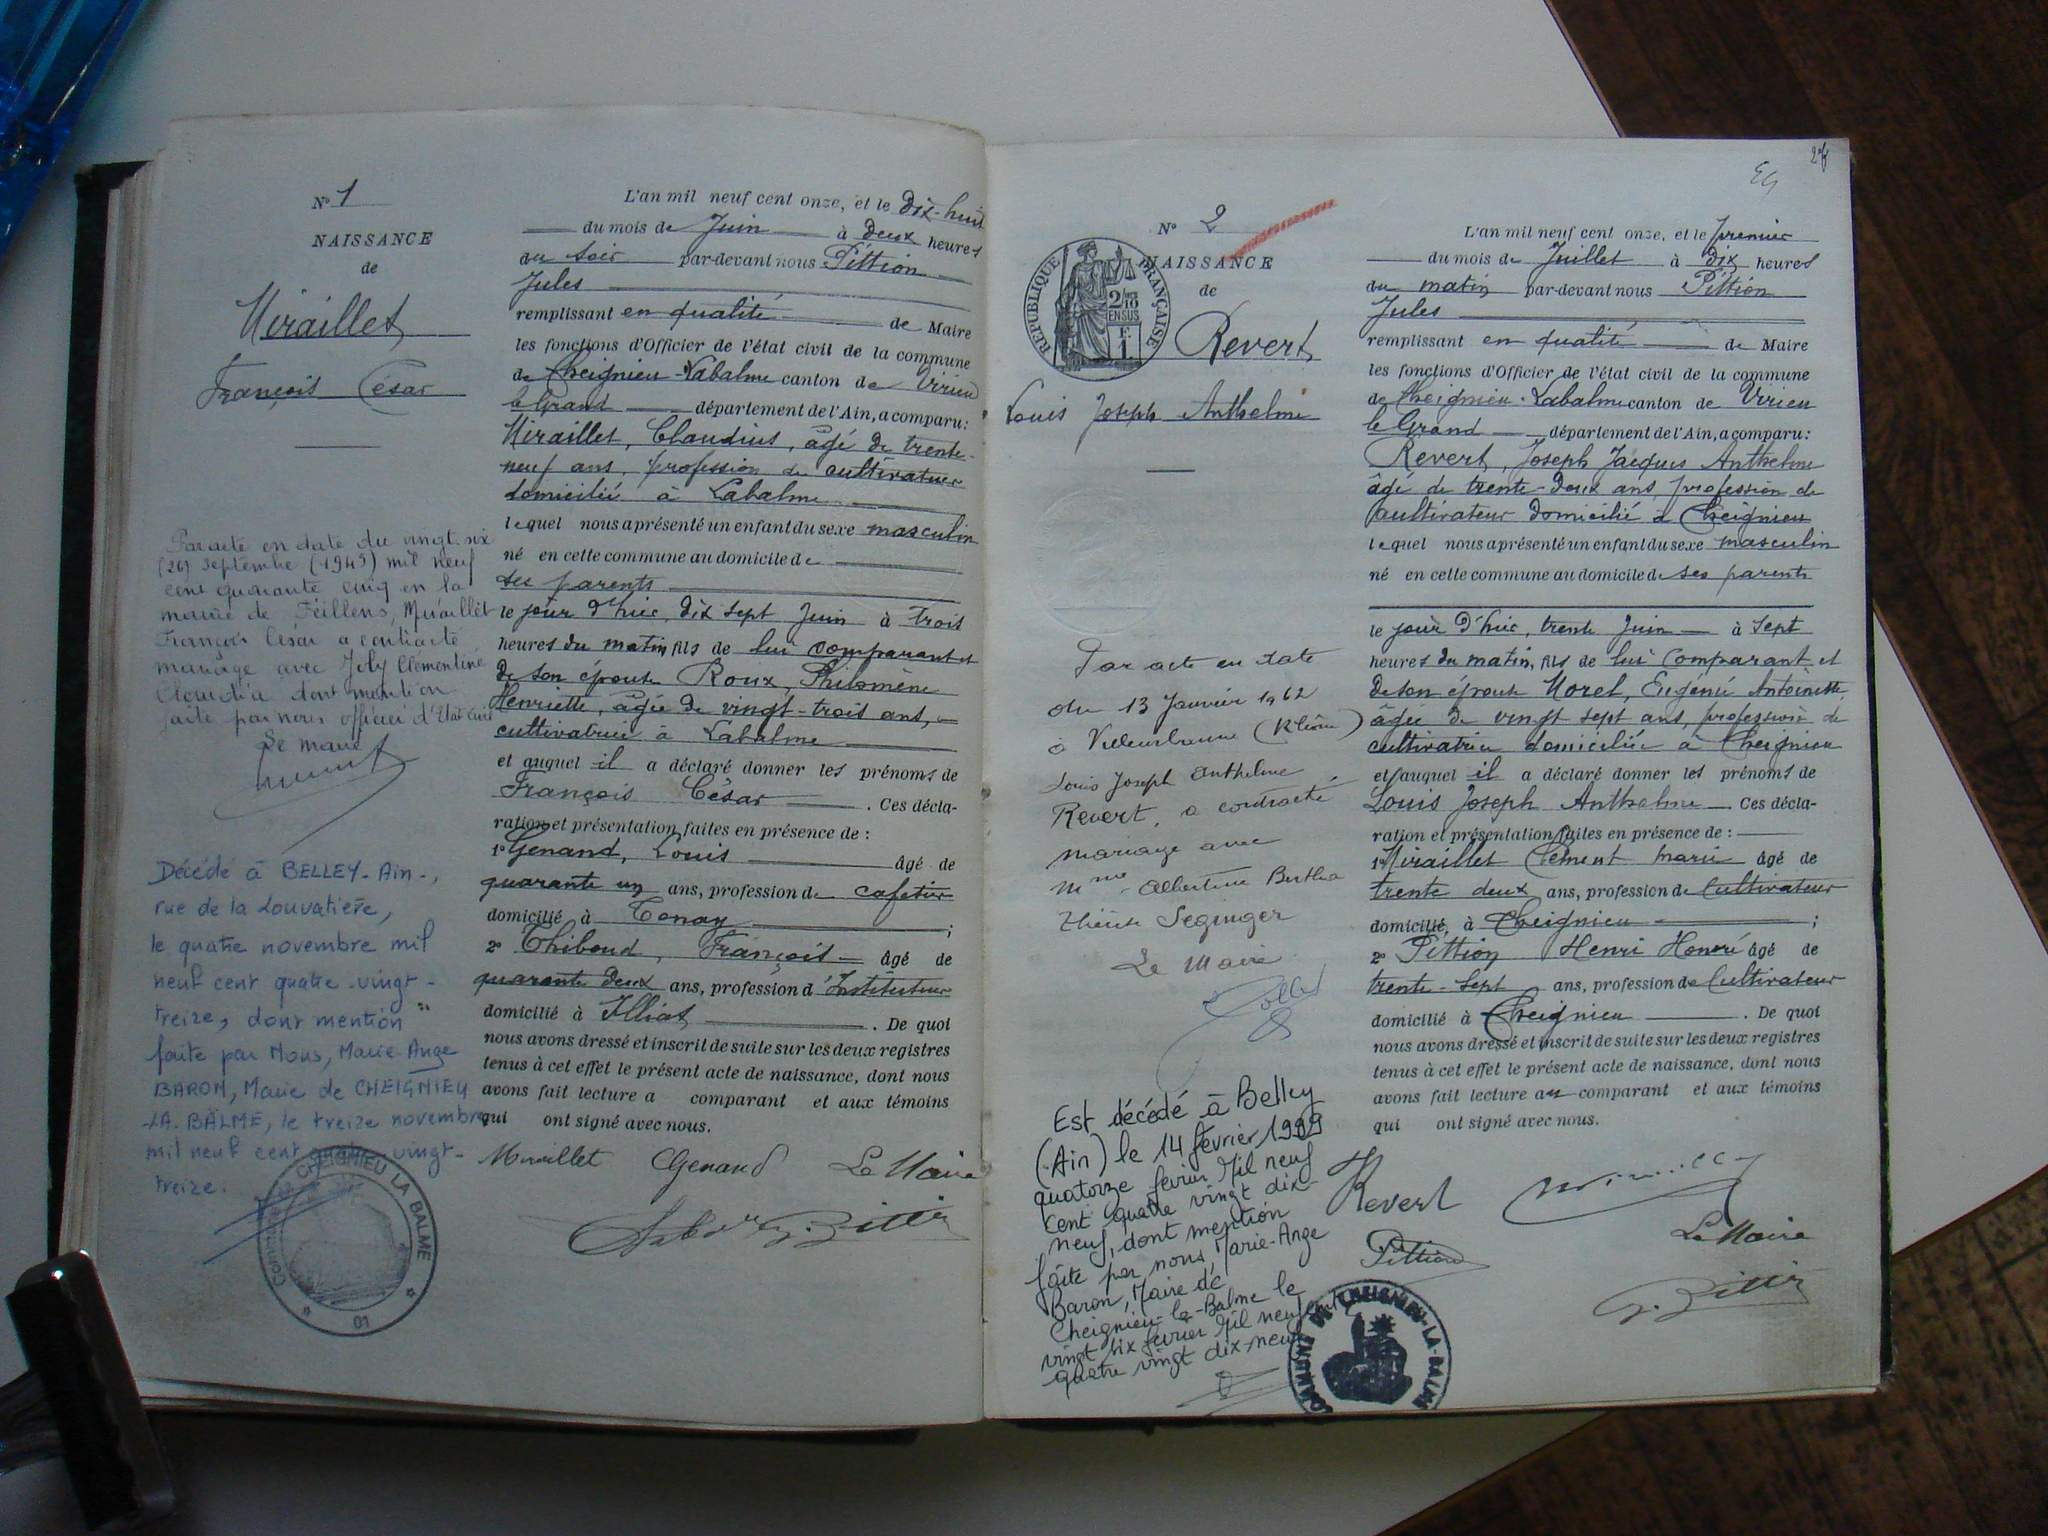 N° 1
NAISSANCE
de
Miraillet
François César
Par acte en date du vingt-six
(26) Septembre (1945) mil neuf
cent quarante cinq en la
mairie de Feillens, Miraillet
François César a contracté
mariage avec Joly Clementine
Claudia dont mention
faite par nous officier d'Etat Civil
Le maire
Décédé à BELLEY - Ain -,
rue de la Louvatière,
le quatre novembre mil
neuf cent quatre-vingt-
treize, dont mention
faite par Nous, Marie-Ange
BARON, Maire de CHEIGNIEU
-LA-BALME, le treize novembre
mil neuf cent quatre-vingt-
treize.
CHEIGNIEU LA BALME
01
L'an mil neuf cent onze, et le dix-huit
du mois de Juin à deux heures
du soir par-devant nous Pittion
Jules
remplissant en qualité de Maire
les fonctions d'Officier de l'état civil de la commune
de Cheignieu-Labalme canton de Virieu
le Grand département de l'Ain, a comparu:
Miraillet, Claudius, âgé de trente-
neuf ans, profession de cultivateur
domicilié à Labalme
lequel nous a présenté un enfant du sexe masculin
né en cette commune au domicile de
ses parents
le jour d'hier, dix sept Juin à trois
heures du matin, fils de lui comparant et
de son épouse Roux, Philomène
Henriette, âgée de vingt-trois ans,
cultivatrice à Labalme
et auquel il a déclaré donner les prénoms de
François César. Ces décla-
ration et présentation faites en présence de :
1° Genand, Louis âgé de
quarante un ans, profession de cafetier
domicilié à Tenay ;
2° Thiboud, François âgé de
quarante deux ans, profession d'Instituteur
domicilié à Illiat. De quoi
nous avons dressé et inscrit de suite sur les deux registres
tenus à cet effet le présent acte de naissance, dont nous
avons fait lecture a comparant et aux témoins
qui ont signé avec nous.
Miraillet Genand Le Maire
J. Pittion
27
N° 2
NAISSANCE
de
RÉPUBLIQUE FRANÇAISE
2/10 EN SUS
F.
1
Revert
Louis Joseph Anthelme
Par acte en date
du 13 Janvier 1962
à Villeurbanne (Rhône)
Louis Joseph Anthelme
Revert, a contracté
mariage avec
Mme Albertine Bertha
Seginger
Le Maire
Est décédé à Belley
(Ain) le 14 février 1999
quatorze février Mil neuf
cent quatre vingt dix-
neuf, dont mention
faite par nous, Marie-Ange
Baron, Maire de
Cheignieu-la-Balme le
vingt six février Mil neuf cent
quatre vingt dix-neuf
COMMUNE DE CHEIGNIEU-LA-BALME
L'an mil neuf cent onze, et le premier
du mois de Juillet à dix heures
du matin par-devant nous Pittion
Jules
remplissant en qualité de Maire
les fonctions d'Officier de l'état civil de la commune
de Cheignieu-Labalme canton de Virieu
le Grand département de l'Ain, a comparu:
Revert, Joseph Jacques Anthelme
âgé de trente-deux ans, profession de
cultivateur domicilié à Cheignieu
lequel nous a présenté un enfant du sexe masculin
né en cette commune au domicile de ses parents
le jour d'hier, trente Juin à sept
heures du matin, fils de lui comparant et
de son épouse Morel, Eugénie Antoinette,
âgée de vingt sept ans, profession de
cultivatrice domiciliée à Cheignieu
et auquel il a déclaré donner les prénoms de
Louis Joseph Anthelme. Ces décla-
ration et présentation faites en présence de :
1° Miraillet Clément Marie âgé de
trente deux ans, profession de Cultivateur
domicilié à Cheignieu ;
2° Pittion Henri Honoré âgé de
trente-sept ans, profession de Cultivateur
domicilié à Cheignieu. De quoi
nous avons dressé et inscrit de suite sur les deux registres
tenus à cet effet le présent acte de naissance, dont nous
avons fait lecture au comparant et aux témoins
qui ont signé avec nous.
Revert
Pittion
Le Maire
J. Pittion